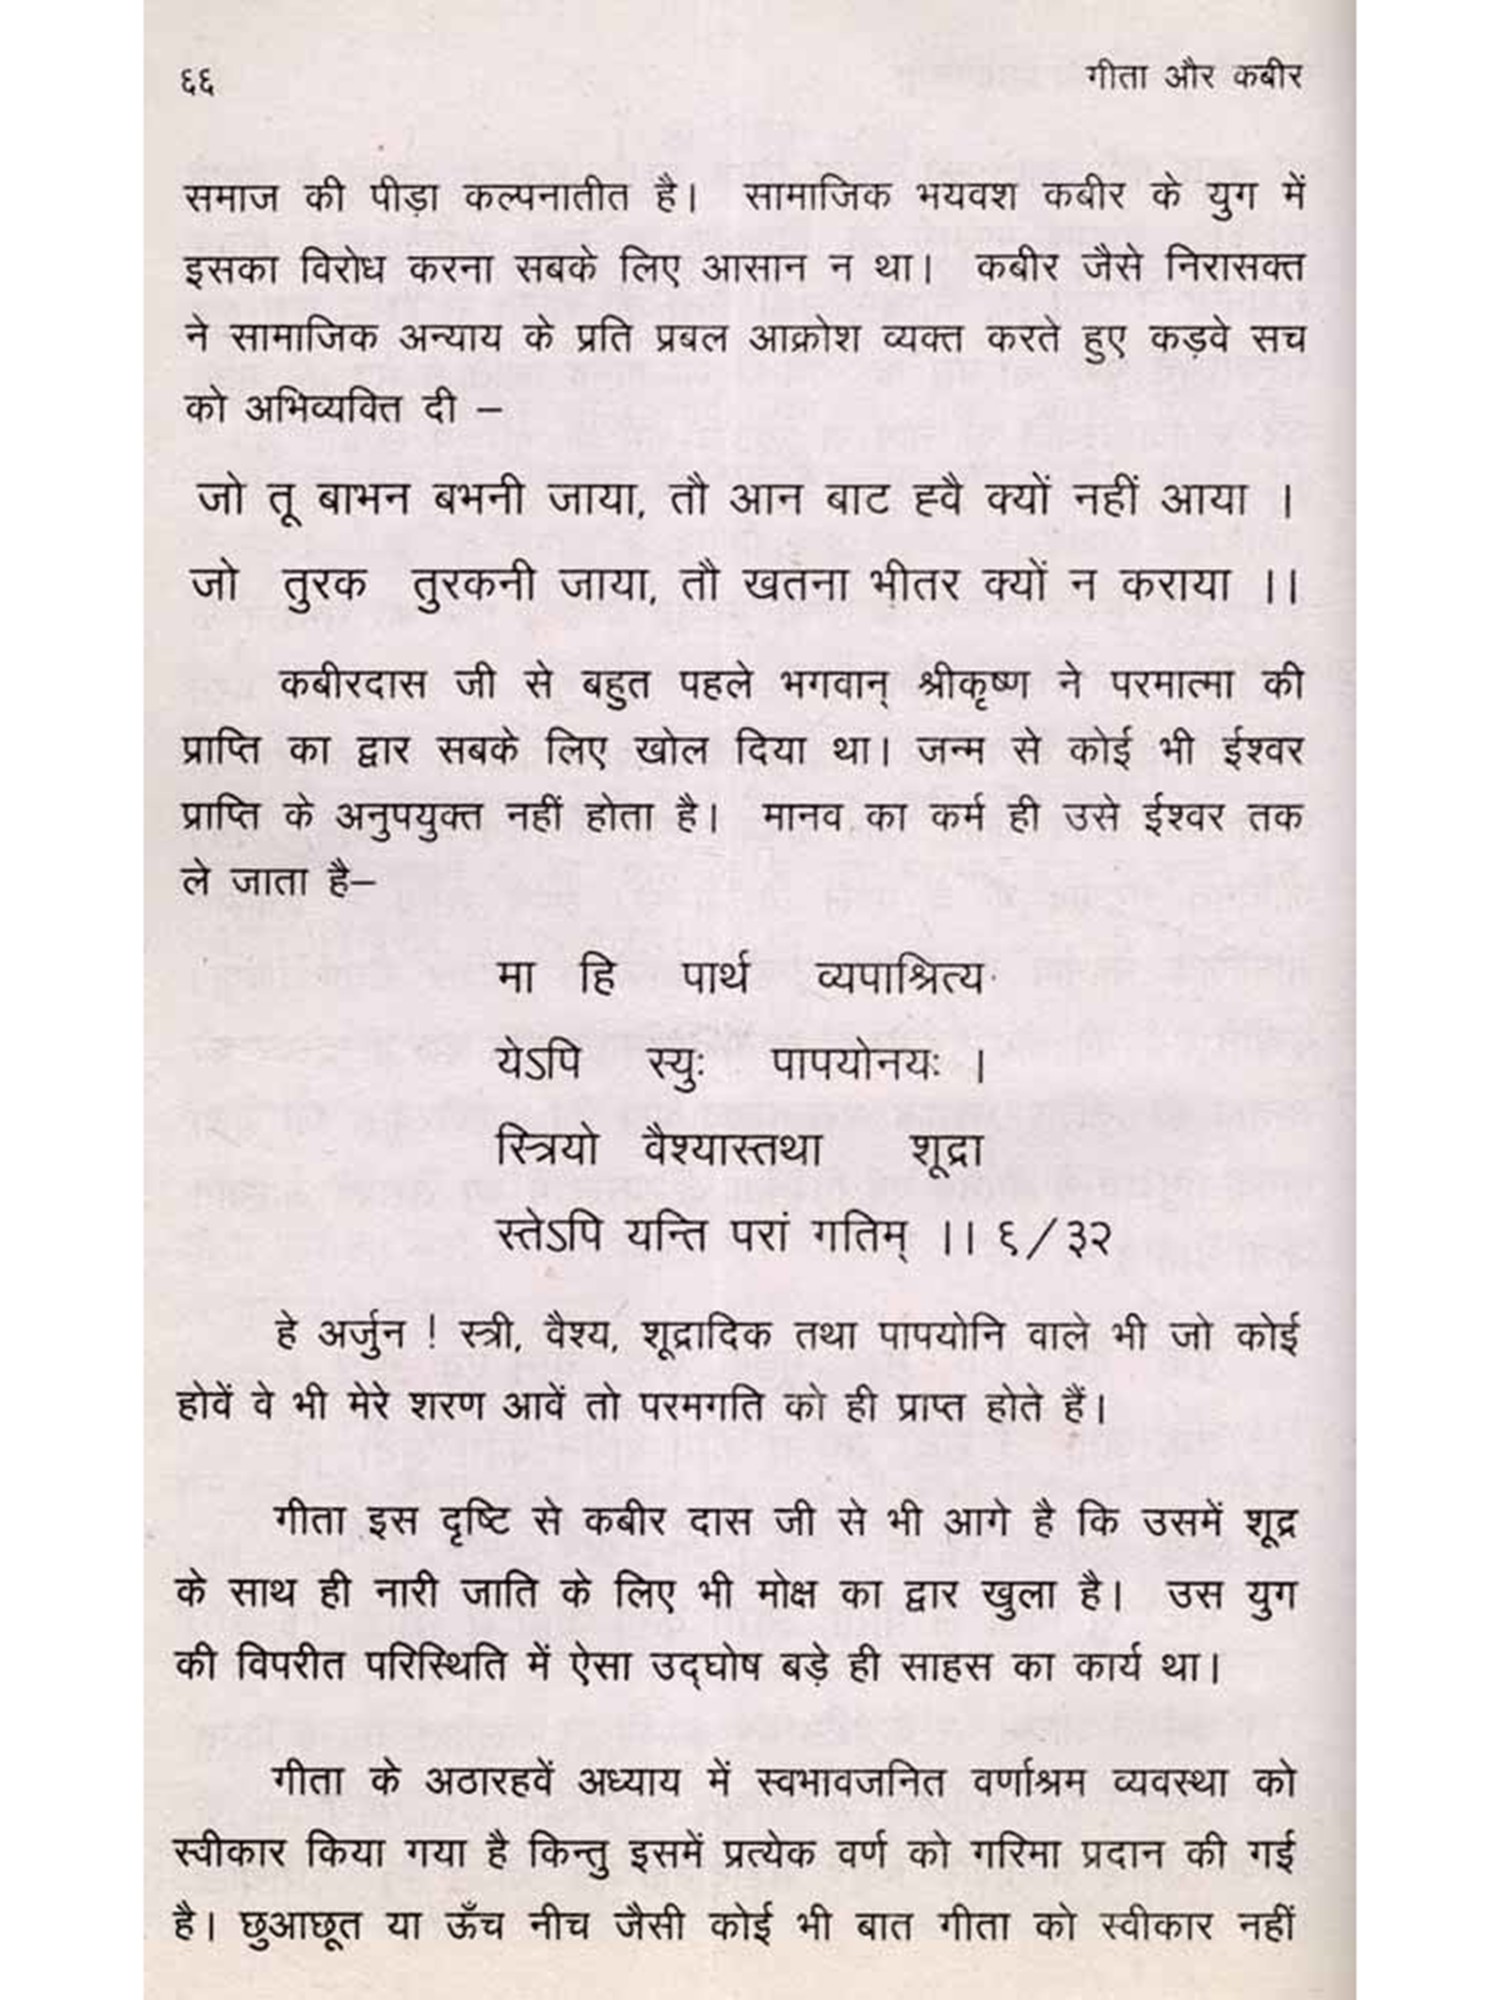 ६६ गीता और कबीर
समाज की पीड़ा कल्पनातीत है। सामाजिक भयवश कबीर के युग में
इसका विरोध करना सबके लिए आसान न था। कबीर जैसे निरासक्त
ने सामाजिक अन्याय के प्रति प्रबल आक्रोश व्यक्त करते हुए कड़वे सच
को अभिव्यवित दी –
जो तू बाभन बभनी जाया, तौ आन बाट ह्वै क्यों नहीं आया ।
जो तुरक तुरकनी जाया, तौ खतना भीतर क्यों न कराया ।।
कबीरदास जी से बहुत पहले भगवान् श्रीकृष्ण ने परमात्मा की
प्राप्ति का द्वार सबके लिए खोल दिया था। जन्म से कोई भी ईश्वर
प्राप्ति के अनुपयुक्त नहीं होता है। मानव का कर्म ही उसे ईश्वर तक
ले जाता है–
मा हि पार्थ व्यपाश्रित्य
येऽपि स्युः पापयोनयः ।
स्त्रियो वैश्यास्तथा शूद्रा
स्तेऽपि यन्ति परां गतिम् ।। ९/३२
हे अर्जुन ! स्त्री, वैश्य, शूद्रादिक तथा पापयोनि वाले भी जो कोई
होवें वे भी मेरे शरण आवें तो परमगति को ही प्राप्त होते हैं।
गीता इस दृष्टि से कबीर दास जी से भी आगे है कि उसमें शूद्र
के साथ ही नारी जाति के लिए भी मोक्ष का द्वार खुला है। उस युग
की विपरीत परिस्थिति में ऐसा उद्घोष बड़े ही साहस का कार्य था।
गीता के अठारहवें अध्याय में स्वभावजनित वर्णाश्रम व्यवस्था को
स्वीकार किया गया है किन्तु इसमें प्रत्येक वर्ण को गरिमा प्रदान की गई
है। छुआछूत या ऊँच नीच जैसी कोई भी बात गीता को स्वीकार नहीं